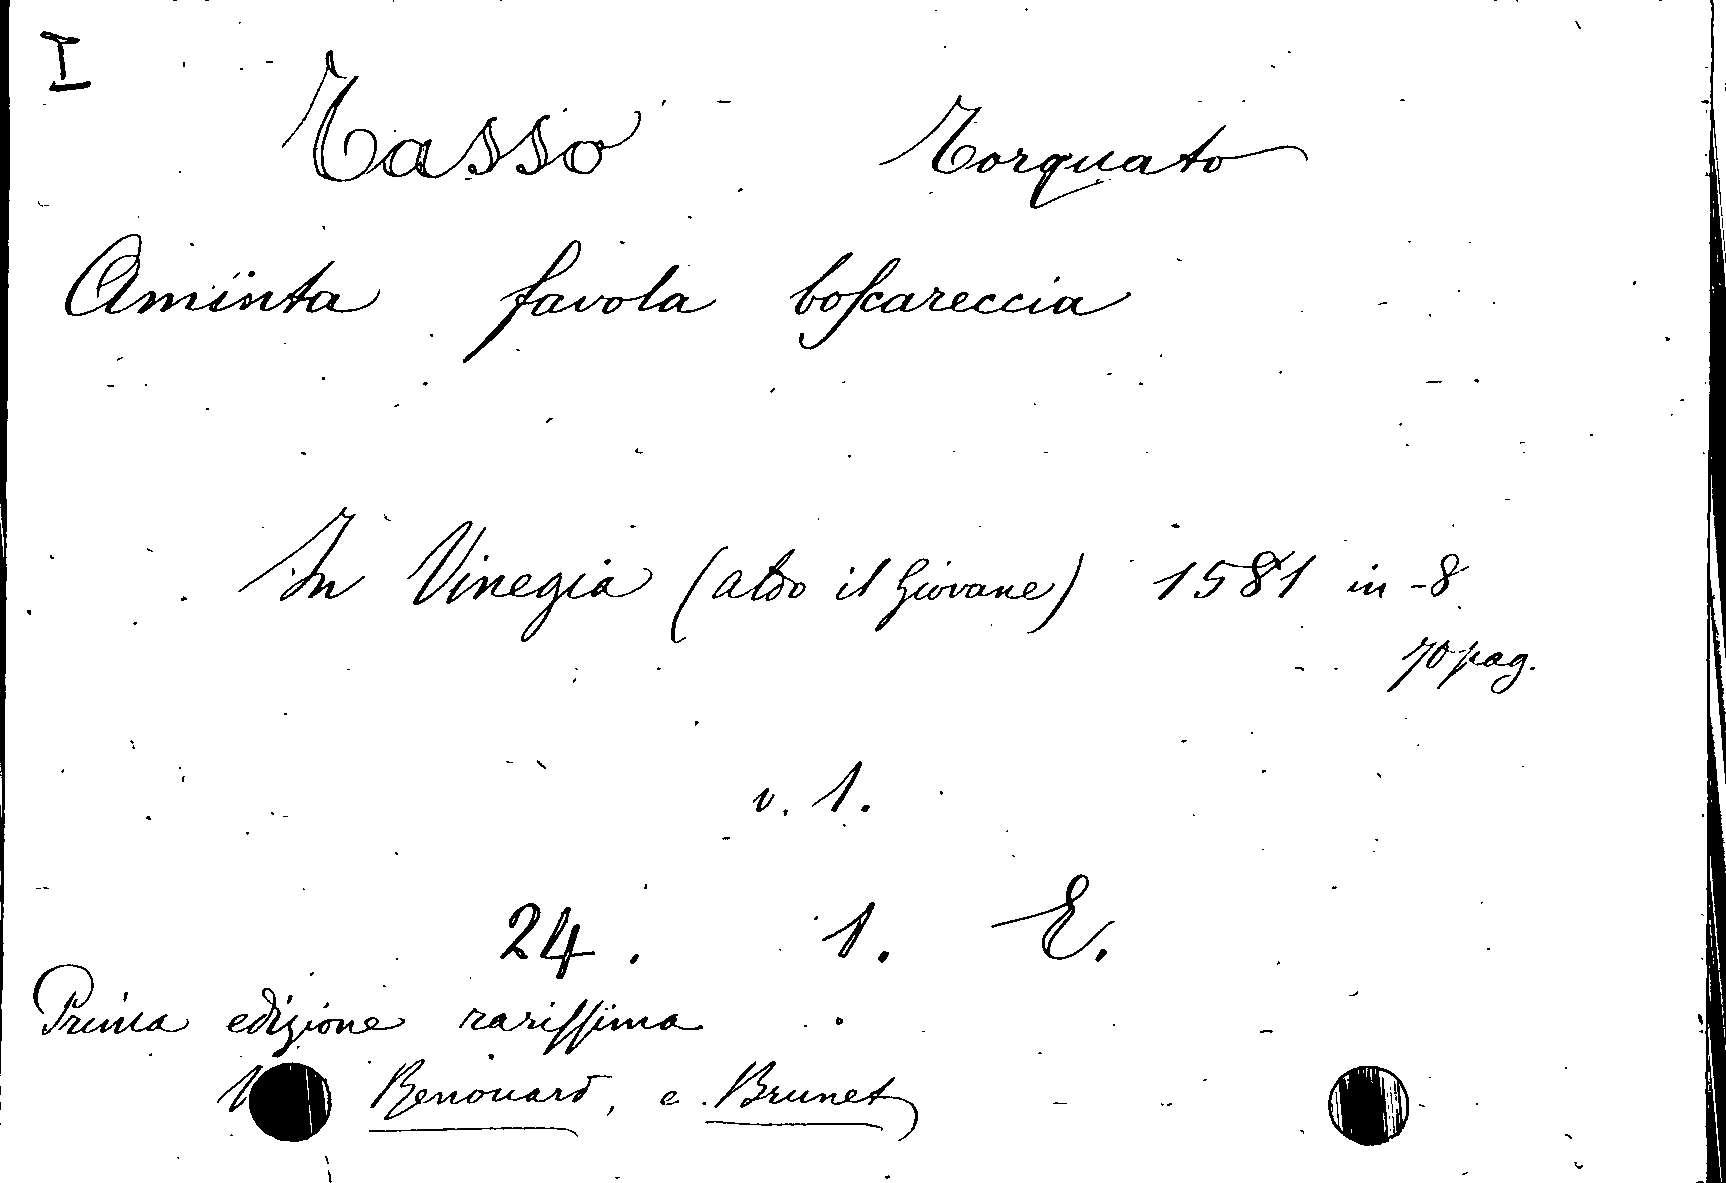 I
Tasso Torquato
Aminta favola boſcareccia
In Vinegia (Aldo il Giovane) 1581 in-8
70 pag.
v. 1.
24. 1. E.
Prima edizione rariſſima
Renouard, e Brunet